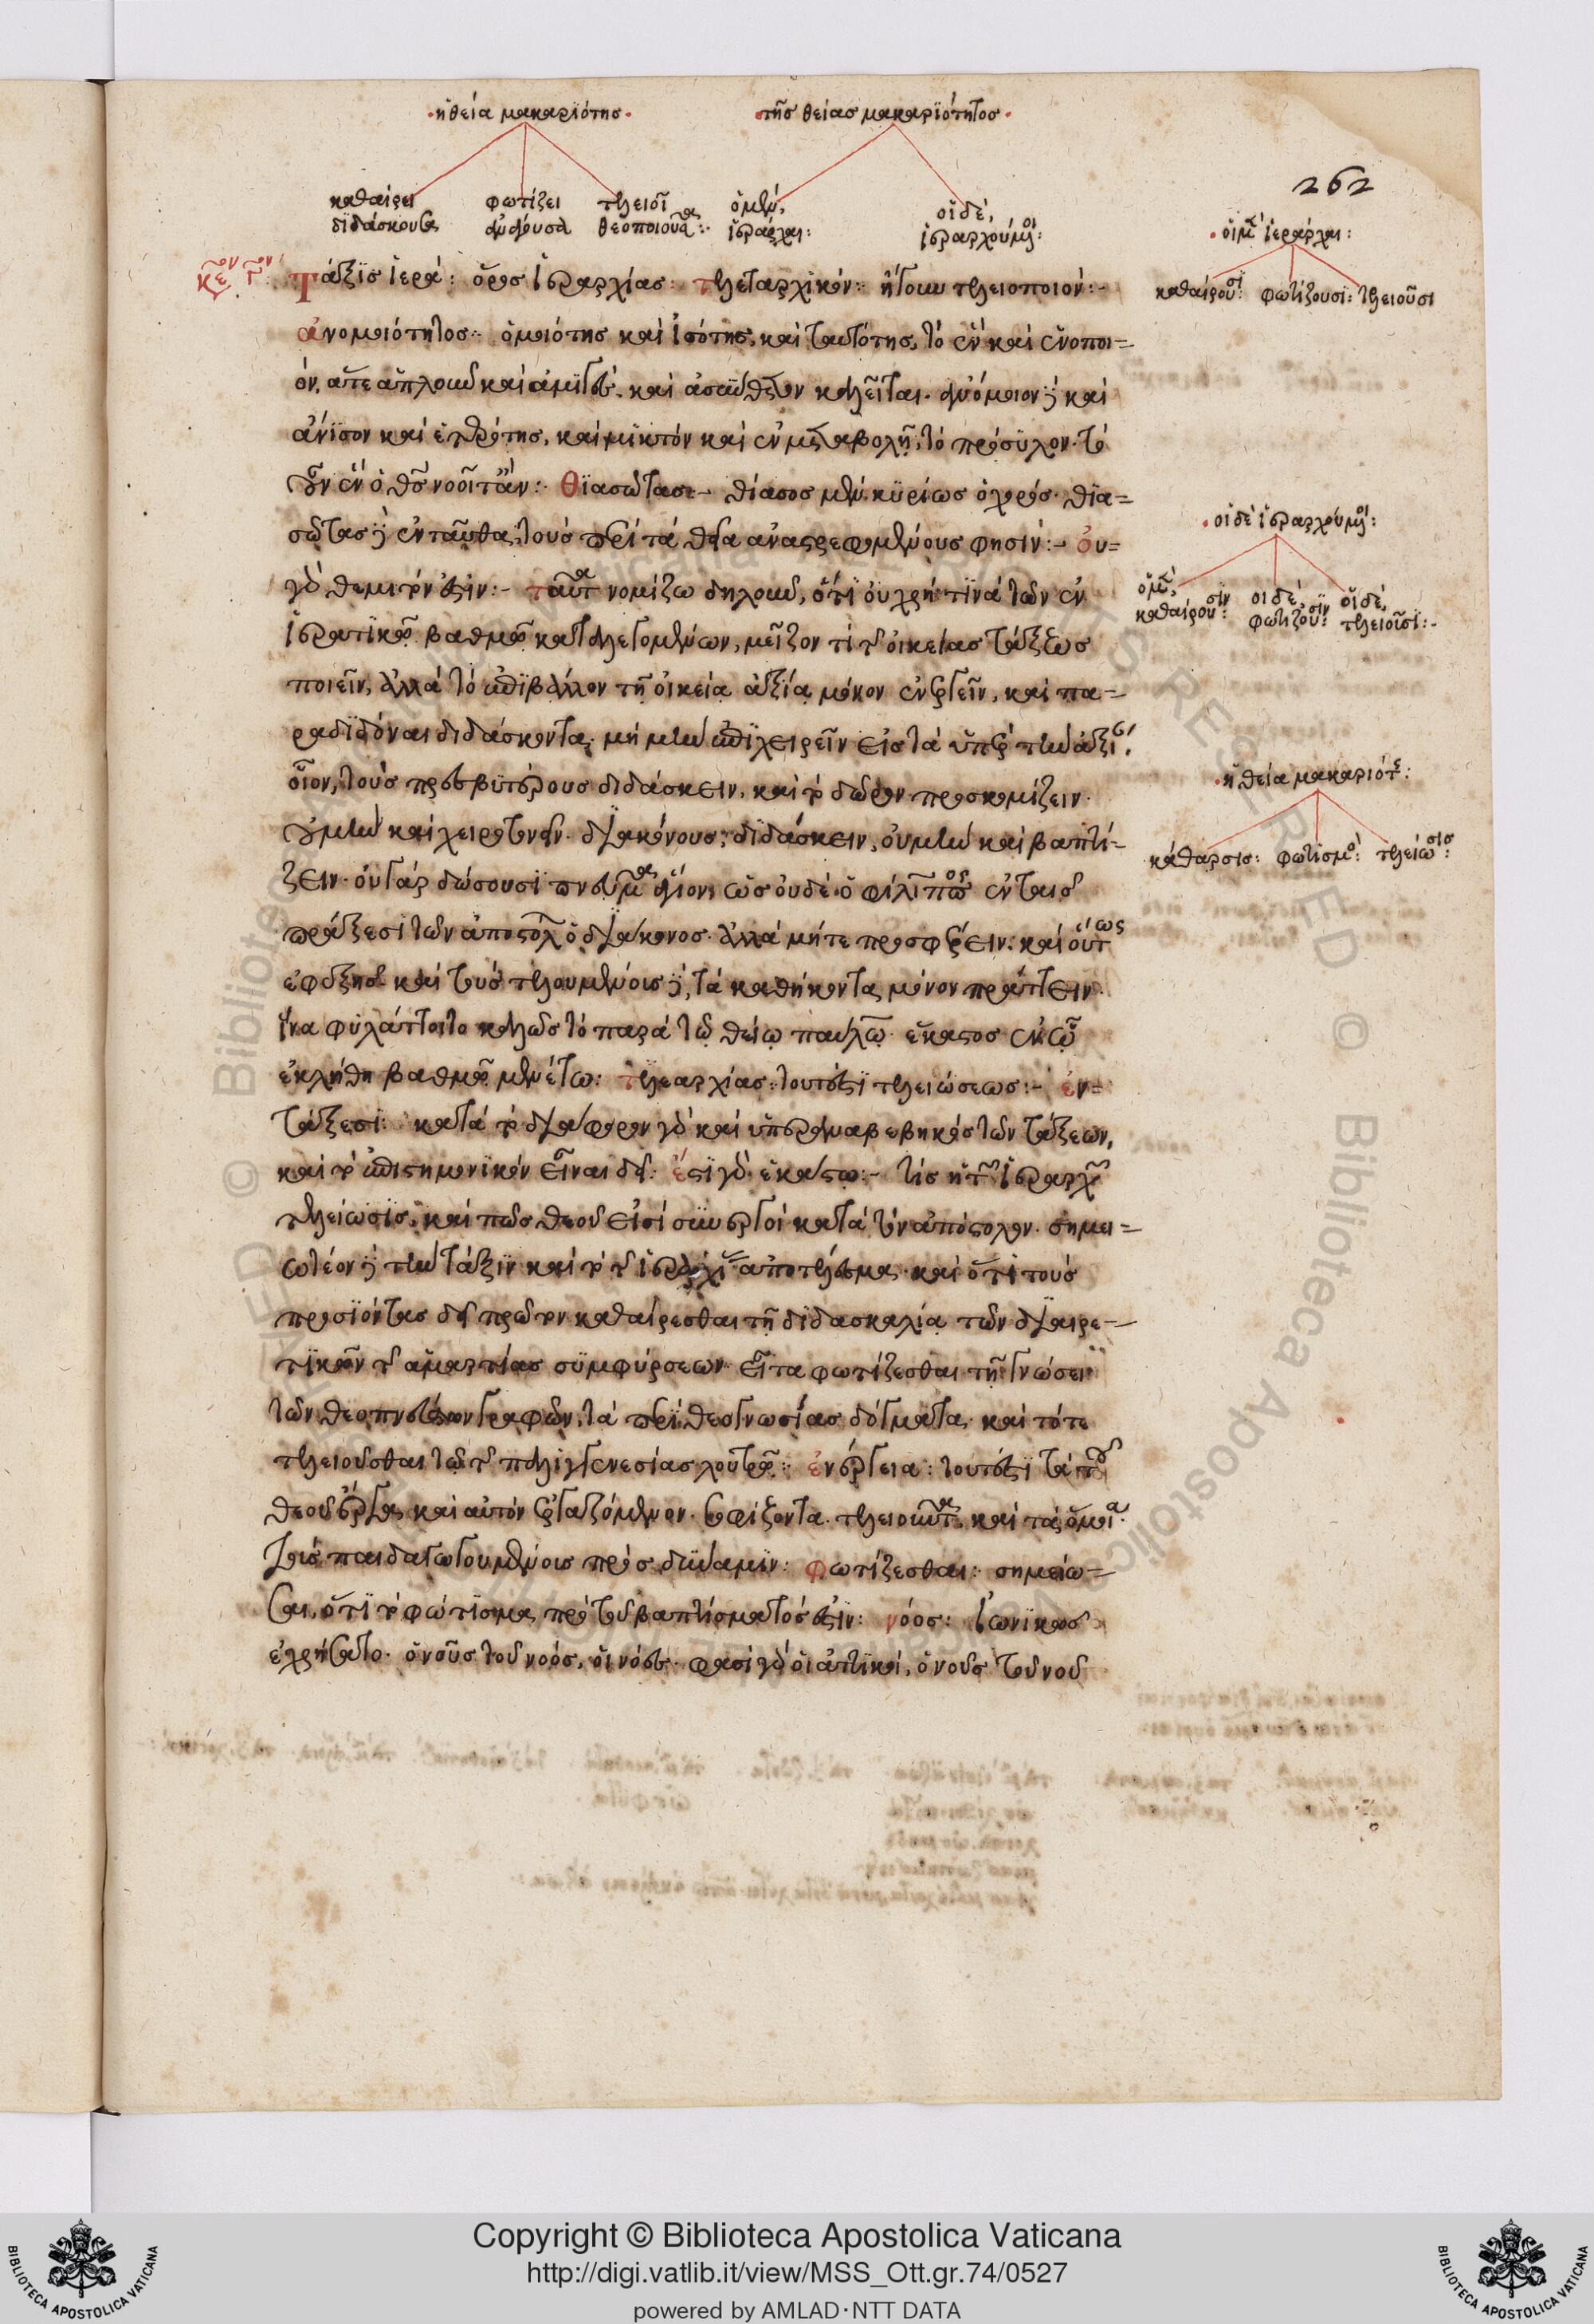 · ἡ θεία μακαριότης ·
· τῆς θείας μακαριότητος ·
καθαίρει φωτίζει τελειοῖ
ὁ μὲν,
οἱ δὲ,
ἱεράρχαι:
ἱεραρχούμενοι:
262
· οἱ μὲν ἱεράρχαι:
καθαίρουσι: φωτίζουσι: τελειοῦσι
Τάξις ἱερά: ὅρος ἱεραρχίας: τελεταρχικόν: ἤγουν τελειοποιόν:-
ἀνομοιότητος: ὁμοιότης καὶ ἰσότης, καὶ ταυτότης, τὸ ἓν καὶ ἑνοποι=
όν, ἅτε ἁπλοῦν καὶ ἀμιγές. καὶ ἀσύνθετον καλεῖται. ἀνόμοιον δὲ καὶ
ἄνισον καὶ ἑτερότης, καὶ μικτόν καὶ ἐν μεταβολῇ, τὸ πρόσυλον. τὸ
οὖν ἓν ὁ θεὸς νοοῖτ' ἄν: Θιασώτας:- θίασος μὲν κυρίως ὁ χορός. θια=
σώτας δὲ ἐνταῦθα, τοὺς περὶ τὰ θεῖα ἀναστρεφομένους φησίν:- οὐ=
γὰρ θεμιτόν ἐστιν:- ταῦτα νομίζω δηλοῦν, ὅτι οὐ χρή τινα τῶν ἐν
ἱερατικῷ βαθμῷ καταλεγομένων, μεῖζόν τι τῆς οἰκείας τάξεως
ποιεῖν, ἀλλὰ τὸ ἐπιβάλλον τῇ οἰκείᾳ ἀξίᾳ μόνον ἐνεργεῖν, καὶ πα-
ραδιδόναι διδάσκοντα, μὴ μὴν ἐπιχειρεῖν εἰς τὰ ὑπὲρ τὴν ἀξίαν.
οἷον, τοὺς πρεσβυτέρους διδάσκειν, καὶ τὸ δῶρον προσκομίζειν.
οὐ μὴν καὶ χειροτονεῖν. διακόνους, διδάσκειν, οὐ μὴν καὶ βαπτί-
ζειν. οὐ γὰρ δώσουσι πνεῦμα ἅγιον, ὡς οὐδὲ ὁ φίλιππος ἐν ταῖς
πράξεσι τῶν ἀποστόλων ὁ διάκονος. ἀλλὰ μήτε προσφέρειν: καὶ οὕτως
ἐφεξῆς καὶ τοῖς τελουμένοις δὲ, τὰ καθήκοντα μόνον πράττειν.
ἵνα φυλάττοιτο καλῶς τὸ παρὰ τῷ θείῳ παύλῳ. ἕκαστος ἐν ᾧ
ἐκλήθη βαθμῷ μενέτω: τελεαρχίας: τουτέστι τελειώσεως:- ἐν=
τάξεσι: κατὰ τὸ διάφορον γὰρ καὶ ὑπεραναβεβηκὸς τῶν τάξεων,
καὶ τὸ ἐπιστημονικόν εἶναι δεῖ: ἔστι γὰρ ἑκάστῳ:- τίς ἡ τῶν ἱεραρχῶν
τελείωσις, καὶ πῶς θεοῦ εἰσὶ συνεργοὶ κατὰ τὸν ἀπόστολον. σημει=
ωτέον δὲ τὴν τάξιν καὶ τὸ τῆς ἱεραρχίας ἀποτέλεσμα. καὶ ὅτι τοὺς
προσιόντας δεῖ πρῶτον καθαίρεσθαι τῇ διδασκαλίᾳ τῶν διαιρε-
τικῶν τῆς ἁμαρτίας συμφύρσεων. εἶτα φωτίζεσθαι τῇ γνώσει
τῶν θεοπνεύστων γραφῶν, τὰ περὶ θεογνωσίας δόγματα, καὶ τότε
τελειοῦσθαι τῷ τῆς παλιγγενεσίας λουτρῷ: ἐνέργεια: τουτέστι τὰ τοῦ
θεοῦ ἔργα, καὶ αὐτὸν ἐργαζόμενον. σφίζοντα. τελειοῦντα, καὶ τὰ ὅμοια.
τοῖς παιδαγωγουμένοις πρὸς δύναμιν: φωτίζεσθαι: σημείω=
σαι, ὅτι τὸ φώτισμα πρὸ τοῦ βαπτίσματός ἐστιν: νόος: ἰωνικῶς
ἐχρήσατο. ὁ νοῦς τοῦ νοός, οἱ νόες. φασὶ γὰρ οἱ ἀττικοί, ὁ νοῦς τοῦ νοῦ
· οἱ δὲ ἱεραρχούμενοι:
οἱ μὲν, οἱ δὲ, οἱ δὲ,
καθαίρουσιν: φωτίζουσιν: τελειοῦσι:-
· ἡ θεία μακαριότης:
κάθαρσις: φωτισμός: τελείωσις:
Copyright © Biblioteca Apostolica Vaticana
http://digi.vatlib.it/view/MSS_Ott.gr.74/0527
powered by AMLAD·NTT DATA
BIBLIOTECA APOSTOLICA VATICANA
BIBLIOTECA APOSTOLICA VATICANA